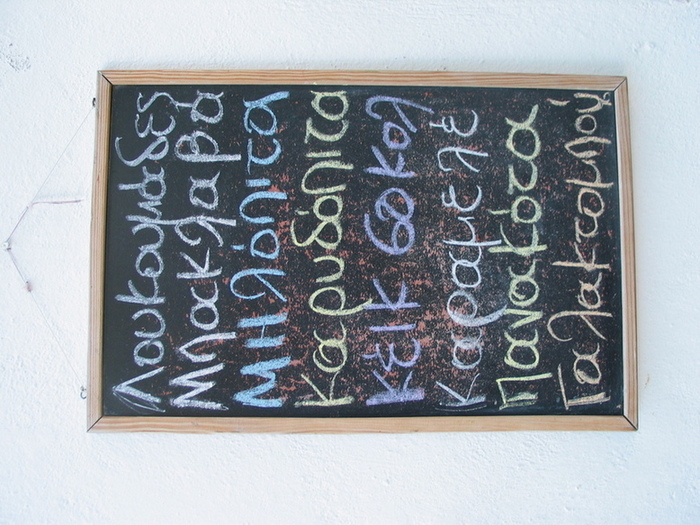 Λουκουμάδες
Μπακλαβά
Μηλόπιτα
Καρυδόπιτα
Κέικ σοκολ
Καραμελέ
Πανακότα
Γαλακτομπού